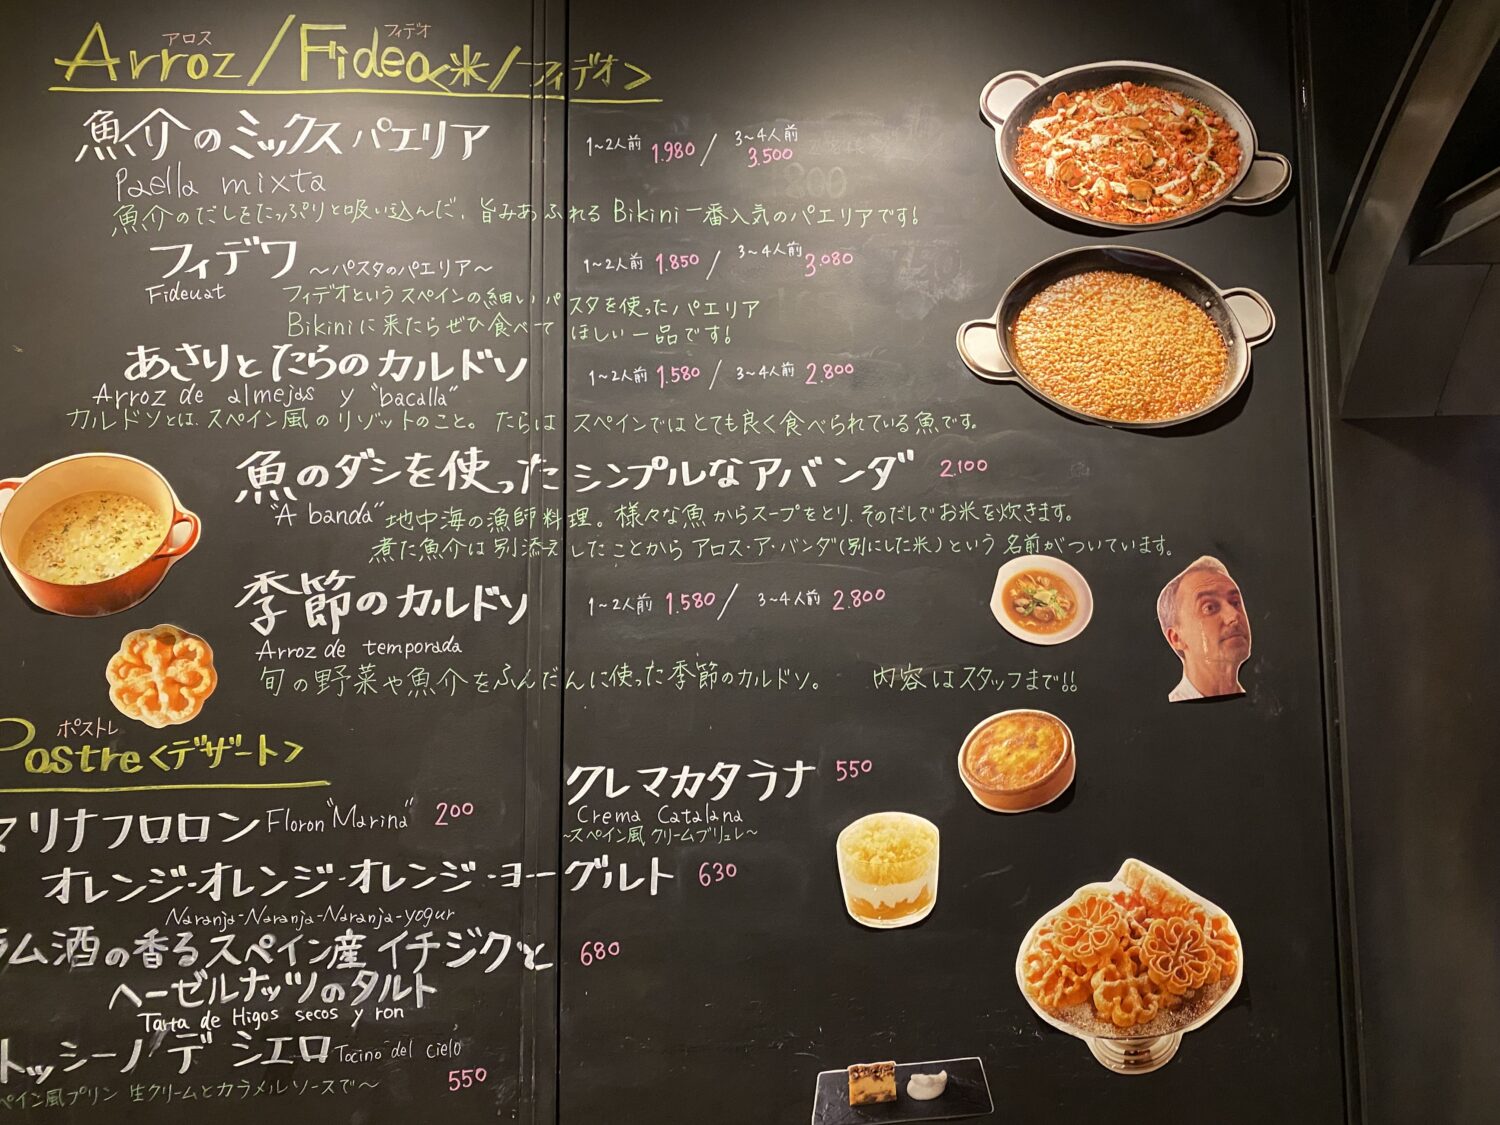 アロス フィデオ
Arroz/Fideo<米/フィデオ>
魚介のミックスパエリア 1~2人前 1.980 / 3~4人前 3.500
Paella mixta
魚介のだしをたっぷりと吸い込んだ、旨みあふれるBikini一番人気のパエリアです!
フィデワ ~パスタのパエリア~ 1~2人前 1.850 / 3~4人前 3.080
Fideuat フィデオというスペインの細いパスタを使ったパエリア
Bikiniに来たらぜひ食べてほしい一品です!
あさりとたらのカルドソ 1~2人前 1.580 / 3~4人前 2.800
Arroz de almejas y "bacalla"
カルドソとは、スペイン風のリゾットのこと。たらはスペインではとても良く食べられている魚です。
魚のダシを使ったシンプルなアバンダ 2.100
"A banda" 地中海の漁師料理。様々な魚からスープをとり、そのだしでお米を炊きます。
煮た魚介は別添えしたことからアロス・ア・バンダ(別にした米)という名前がついています。
季節のカルドソ 1~2人前 1.580 / 3~4人前 2.800
Arroz de temporada
旬の野菜や魚介をふんだんに使った季節のカルドソ。 内容はスタッフまで!!
ポストレ
Postre<デザート>
クレマカタラナ 550
Crema Catalana
~スペイン風クリームブリュレ~
マリナフロロン Floron "Marina" 200
オレンジ-オレンジ-オレンジ-ヨーグルト 630
Naranja-Naranja-Naranja-yogur
ラム酒の香るスペイン産イチジクと 680
ヘーゼルナッツのタルト
Tarta de Higos secos y ron
トッシーノデシエロ Tocino del cielo
ペイン風プリン 生クリームとカラメルソースで~ 550